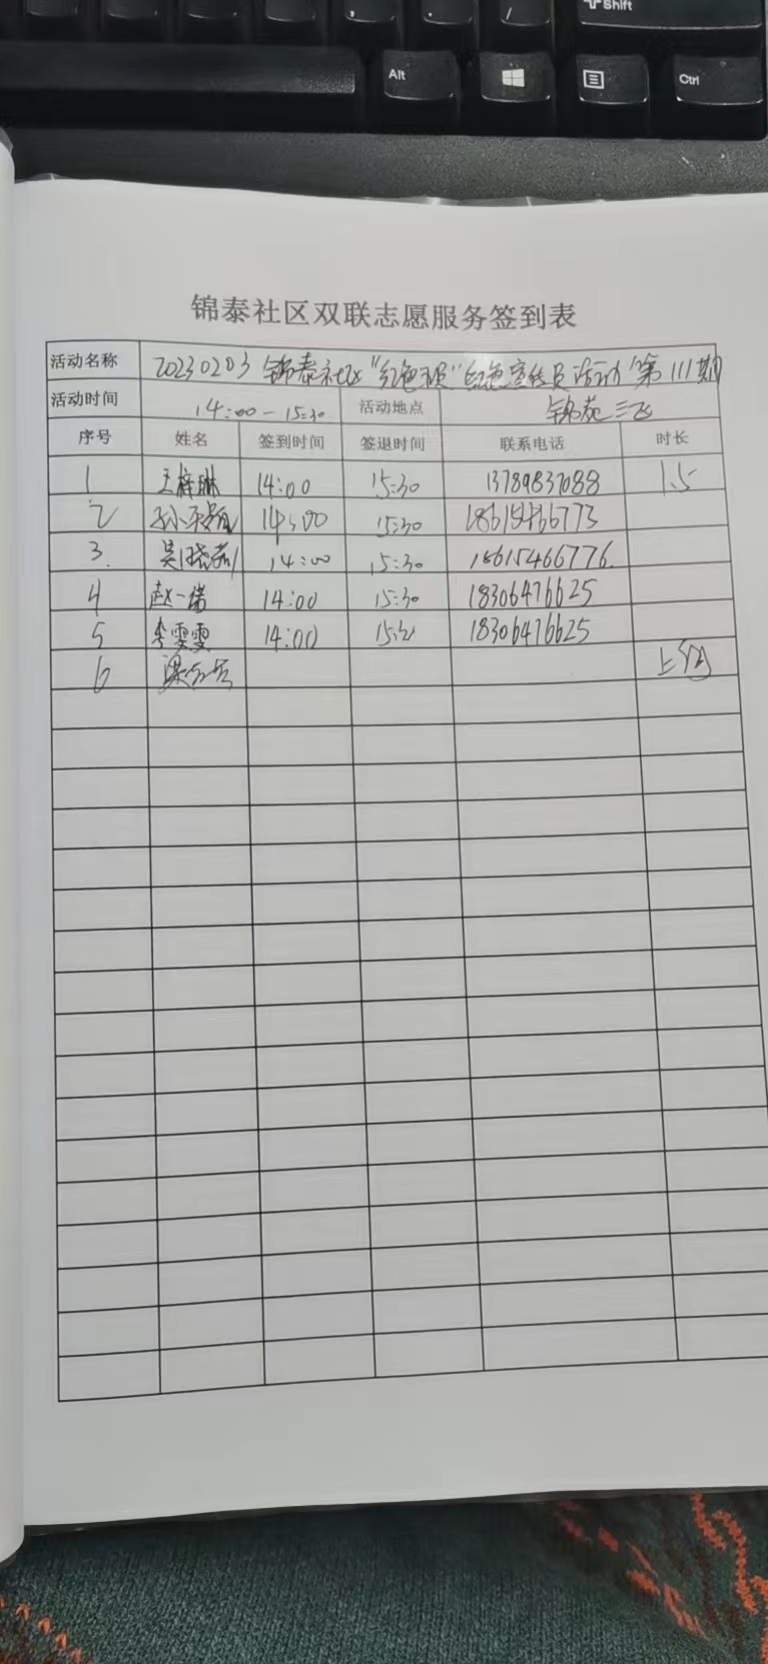 Shift
Alt
Ctrl
锦泰社区双联志愿服务签到表
活动名称 20230203 锦泰社区"红色 "红色宣传员活动 第111期
活动时间 14:00-15:30 活动地点 锦苑三
序号 姓名 签到时间 签退时间 联系电话 时长
1 王梓琳 14:00 15:30 13789837088 1.5
2 14:00 15:30 18615466773
3. 吴晓莉 14:00 15:30 18615466776
4 赵一瑞 14:00 15:30 18306476625
5 李雯雯 14:00 18306476625
6